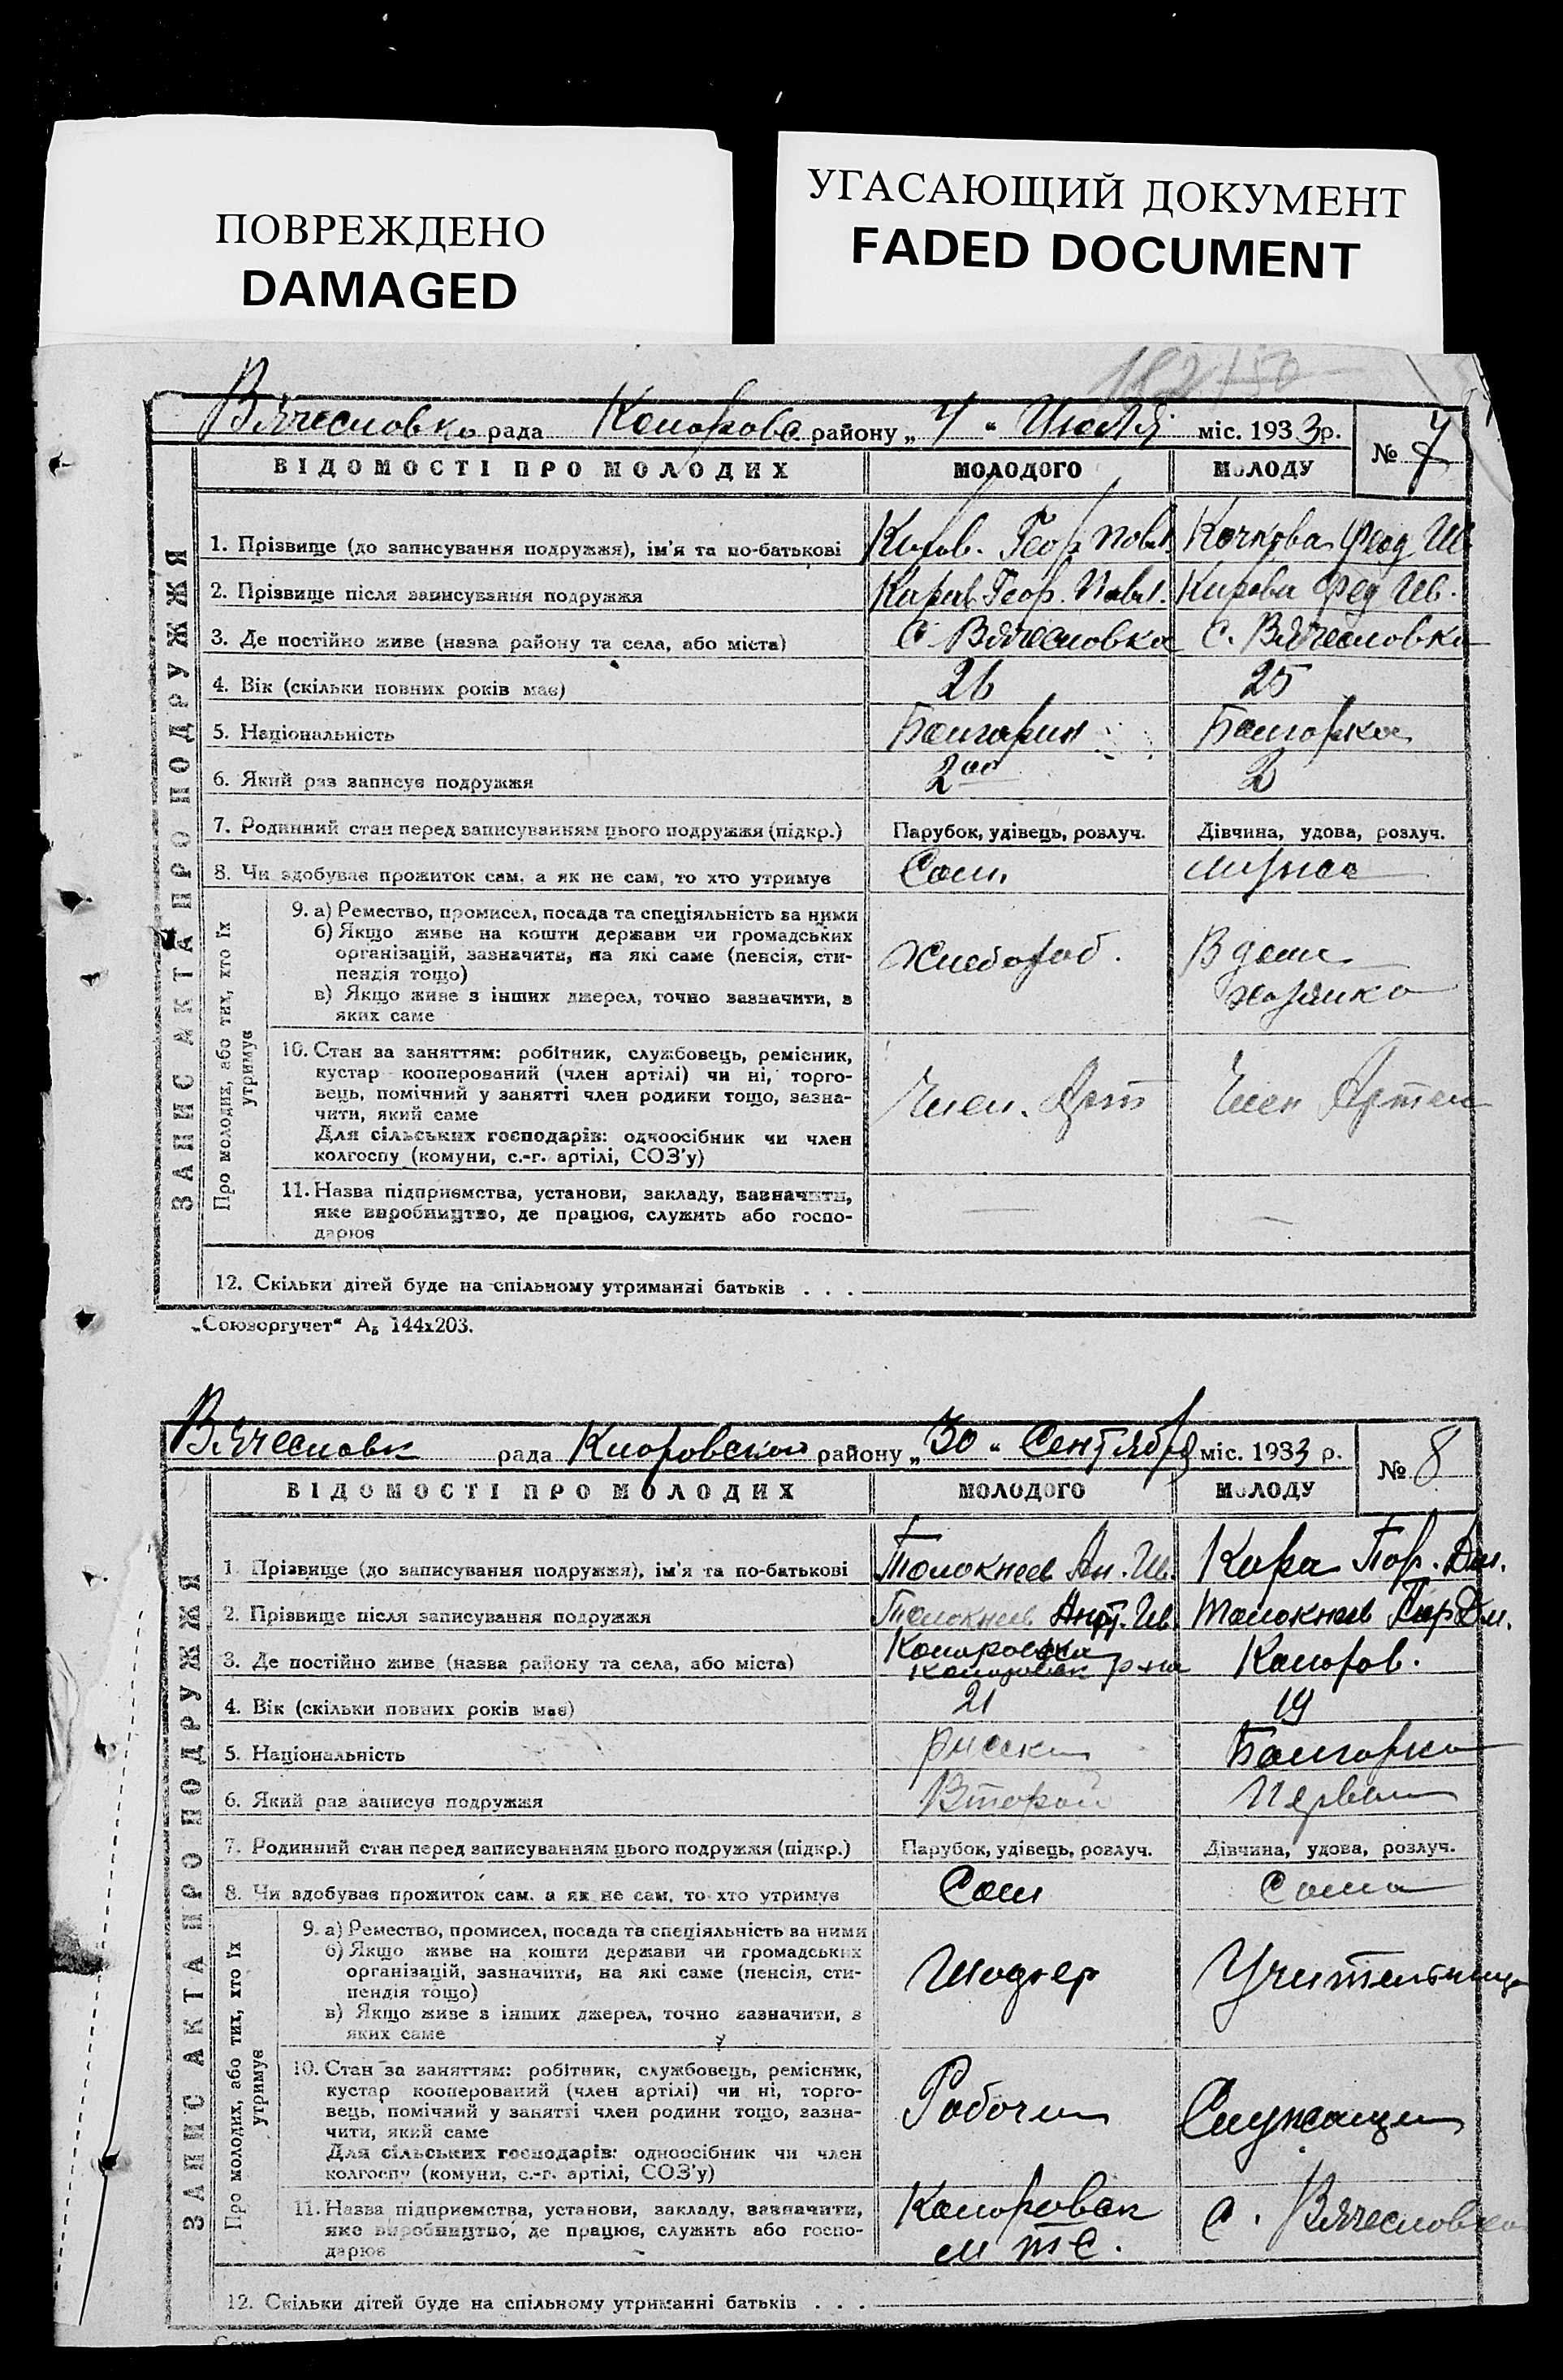 ПОВРЕЖДЕНО
DAMAGED
УГАСАЮЩИЙ ДОКУМЕНТ
FADED DOCUMENT
Вячесловка рада район „ 4 “ Июля міс. 1933р.
№ 7
ВІДОМОСТІ ПРО МОЛОДИХ МОЛОДОГО МОЛОДУ
ЗАПИС АКТА ПРО ПОДРУЖЖЯ
1. Прізвище (до записування подружжя), ім'я та по-батькові Геор. Павл. Кочкова Феод Ив
2. Прізвище після записування подружжя Геор. Павл. Кирова Фед Ив.
3. Де постійно живе (назва району та села, або міста) С Вячесловка С. Вячесловка
4. Вік (скільки повних років має) 26 25
5. Національність Болгарин Болгарка
6. Який раз записує подружжя 2ой 2
7. Родинний стан перед записуванням цього подружжя (підкр.) Парубок, удівець, розлуч. Дівчина, удова, розлуч.
8. Чи здобував прожиток сам, а як не сам, то хто утримує Сам.
Про молодих, або тих, хто їх утримує
9. а) Ремество, промисел, посада та спеціяльність за ними
б) Якщо живе на кошти держави чи громадських
організацій, зазначити, на які саме (пенсія, сти-
пендія тощо)
в) Якщо живе з інших джерел, точно зазначити, з
яких саме
Хлебороб. В дом
хозяйка
10. Стан за заняттям: робітник, службовець, ремісник,
кустар кооперований (член артілі) чи ні, торго-
вець, помічний у занятті член родини тощо, зазна-
чити, який саме
Для сільських господарів: одноосібник чи член
колгоспу (комуни, с.-г. артілі, СОЗ'у)
Член. Арт Член Артели
11. Назва підприємства, установи, закладу, зазначити,
яке виробництво, де працює, служить або госпо-
дарює
12. Скільки дітей буде на спільному утриманні батьків . . .
„Союзоргучет“ А5 144х203.
Вячесловк рада району „ 30 “ Сентября міс. 1933 р.
№ 8
ВІДОМОСТІ ПРО МОЛОДИХ МОЛОДОГО МОЛОДУ
ЗАПИС АКТА ПРО ПОДРУЖЖЯ
1. Прізвище (до записування подружжя), ім'я та по-батькові Толокнеев Ан. Ив. Кара
2. Прізвище після записування подружжя Толокнеев Ант. Ив. Толокнеев
3. Де постійно живе (назва району та села, або міста) р-на
4. Вік (скільки повних років має) 21 19
5. Національність русский Болгарка
6. Який раз записує подружжя Второй Первый
7. Родинний стан перед записуванням цього подружжя (підкр.) Парубок, удівець, розлуч. Дівчина, удова, розлуч.
8. Чи здобуває прожиток сам, а як не сам, то хто утримує Сам Сама
Про молодих, або тих, хто їх утримує
9. а) Ремество, промисел, посада та спеціяльність за ними
б) Якщо живе на кошти держави чи громадських
організацій, зазначити, на які саме (пенсія, сти-
пендія тощо)
в) Якщо живе з інших джерел, точно зазначити, з
яких саме
Шофер Учительница
10. Стан за заняттям: робітник, службовець, ремісник,
кустар кооперований (член артілі) чи ні, торго-
вець, помічний у занятті член родини тощо, зазна-
чити, який саме
Для сільських господарів: одноосібник чи член
колгоспу (комуни, с.-г. артілі, СОЗ'у)
Рабочий Служащий
11. Назва підприємства, установи, закладу, зазначити,
яке виробництво, де працює, служить або госпо-
дарює
МТС. С. Вячесловка
12. Скільки дітей буде на спільному утриманні батьків . . .